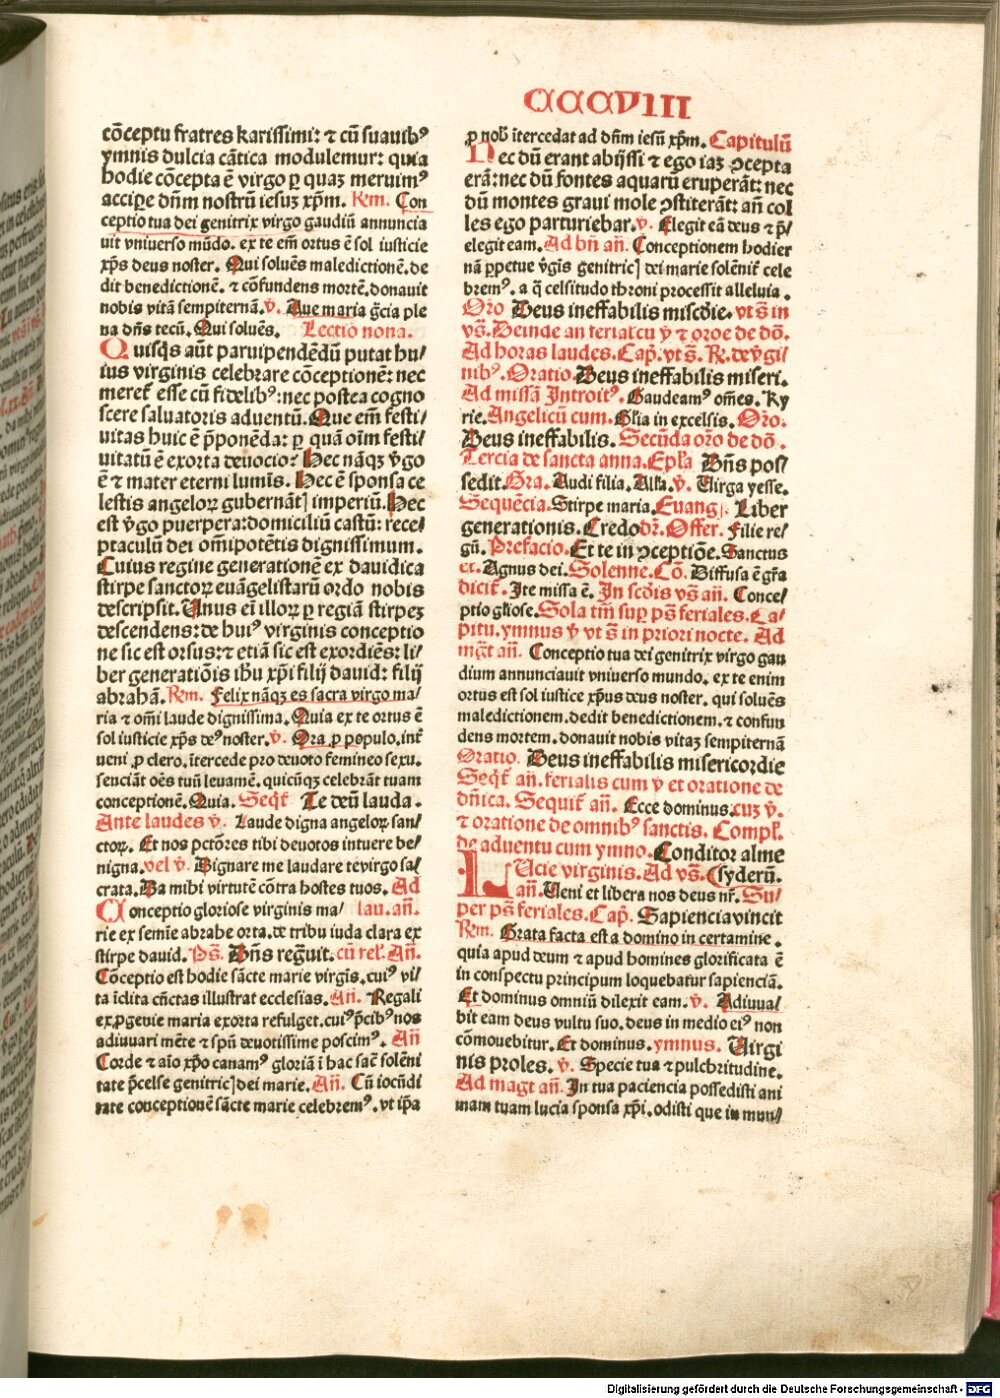 CCCVIII
cōceptu fratres karissimi: ⁊ cū suauibꝰ
ymnis dulcia cātica modulemur: quia
hodie cōcepta ē virgo ꝑ quaꝫ meruimꝰ
accipe dn̄m nostrū iesuꝫ xp̄m. Rm. Con
ceptio tua dei genitrix virgo gaudiū annuncia
uit vniuerso mūdo. ex te em̄ ortus ē sol iusticie
xp̄s deus noster. Qui soluēs maledictionē. de
dit benedictionē. ⁊ cōfundens mortē. donauit
nobis vitā sempiternā. v̄. Aue maria gr̄cia ple
na dn̄s tecū. Qui soluēs. Lectio nona.
Quisq̄s aūt paruipendēdū putat hu/
ius virginis celebrare cōceptionē: nec
meret̄ esse cū fidelibꝰ: nec postea cogno
scere saluatoris aduentū. Que em̄ festi/
uitas huic ē p̄ponēda: ꝑ quā oīm festi/
uitatū ē exorta deuocio: Hec nāqꝫ v̄go
ē ⁊ mater eterni lumīs. Hec ē sponsa ce
lestis angeloꝝ gubernāt̄ imperiū. Hec
est v̄go puerpera: domiciliū castū: rece/
ptaculū dei om̄ipotētis dignissimum.
Cuius regine generationē ex dauidica
stirpe sanctoꝝ euāgelistarū ordo nobis
descripsit. Unus ei illoꝝ ꝑ regiā stirpeꝫ
descendens: de huiꝰ virginis conceptio
ne sic est orsus: ⁊ etiā sic est exordiēs: li/
ber generatiōis ihu xp̄i filij dauid: filij
abrahā. Rm. Felix nāqꝫ es sacra virgo ma/
ria ⁊ om̄i laude dignissima. Quia ex te ortus ē
sol iusticie xp̄s deꝰ noster. v̄. Ora ꝓ populo. int̄
ueni ꝓ clero. ītercede pro deuoto femineo sexu.
senciāt oēs tuū leuamē. quicūqꝫ celebrāt tuam
conceptionē. Quia. Seqt̄ Te deū lauda.
Ante laudes v̄. Laude digna angeloꝝ san/
ctoꝝ. Et nos pctōres tibi deuotos intuere be/
nigna. vel v̄. Dignare me laudare te virgo sa/
crata. Da mihi virtutē cōtra hostes tuos. Ad
Conceptio gloriose virginis ma/ lau. an̄.
rie ex semīe abrahe orta. de tribu iuda clara ex
stirpe dauid. Ps̄. Dn̄s regn̄uit. cū rel̄. An̄.
Cōceptio est hodie sācte marie virgīs. cuiꝰ vi/
ta īclita cn̄ctas illustrat ecclesias. An̄. Regali
ex ꝓgenie maria exorta refulget. cuiꝰ p̄cibꝰ nos
adiuuari mēte ⁊ spū deuotissime poscimꝰ. An̄
Corde ⁊ aīo xp̄o canamꝰ gloriā ī hac sac̄ solēni
tate p̄celse genitricꝫ dei marie. An̄. Cū iocūdi
tate conceptionē sācte marie celebremꝰ. vt ip̄a
ꝓ nob̄ ītercedat ad dn̄m iesū xp̄m. Capitulū
Nec dū erant abyssi ⁊ ego iaꝫ ꝯcepta
erā: nec dū fontes aquarū eruperāt: nec
dū montes graui mole ꝯstiterāt: an̄ col
les ego parturiebar. v̄. Elegit eā deus ⁊ p̄/
elegit eam. Ad bn̄ an̄. Conceptionem hodier
nā ꝑpetue v̄gīs genitricꝫ dei marie solēnit̄ cele
bremꝰ. a q̄ celsitudo throni processit alleluia.
Oro Deus ineffabilis misc̄die. vt s̄ in
vs̄. Deinde an ferial̄ cū v̄ ⁊ oroe de dō.
Ad horas laudes. Cap̄. vt s̄. R̄. de v̄gi/
nibꝰ. Oratio. Deus ineffabilis miseri.
Ad missā Introitꝰ. Gaudeamꝰ om̄es. Ky
rie. Angelicū cum. Glia in excelsis. Oro.
Deus ineffabilis. Secūda oro de dō.
Tercia de sancta anna. Epl̄a Dn̄s pos/
sedit. Gra. Audi filia. Alla. v̄. Uirga yesse.
Sequēcia. Stirpe maria. Euang. Liber
generationis. Credo dr̄. Offer. Filie re/
gū. Prefacio. Et te in ꝯceptiōe. Sanctus
et. Agnus dei. Solenne. Cō. Diffusa ē gr̄a
dicit̄. Ite missa ē. In scdīs vs̄ an̄. Conce/
ptio gliose. Sola tm̄ suꝑ ps̄ feriales. Ca/
pitu. ymnus v̄ vt s̄ in priori nocte. Ad
mgt̄ an̄. Conceptio tua dei genitrix virgo gau
dium annunciauit vniuerso mundo. ex te enim
ortus est sol iustice xp̄us deus noster. qui soluēs
maledictionem. dedit benedictionem. ⁊ confun
dens mortem. donauit nobis vitaꝫ sempiternā
Oratio. Deus ineffabilis misericordie
Seqt̄ an̄. ferialis cum v̄ et oratione de
dn̄ica. Sequit̄ an̄. Ecce dominus. cuꝫ v̄.
⁊ oratione de omnibꝰ sanctis. Compl̄.
de aduentu cum ymno. Conditor alme
Lucie virginis. Ad vs̄. (syderū.
an̄. Ueni et libera nos deus nr̄. Su/
per ps̄ feriales. Cap̄. Sapiencia vincit
Rm. Grata facta est a domino in certamine.
quia apud deum ⁊ apud homines glorificata ē
in conspectu principum loquebatur sapienciā.
Et dominus omniū dilexit eam. v̄. Adiuua/
bit eam deus vultu suo. deus in medio eiꝰ non
cōmouebitur. Et dominus. ymnus. Uirgi
nis proles. v̄. Specie tua ⁊ pulchritudine.
Ad magt̄ an̄. In tua paciencia possedisti ani
mam tuam lucia sponsa xp̄i. odisti que in mun/
Digitalisierung gefördert durch die Deutsche Forschungsgemeinschaft - DFG